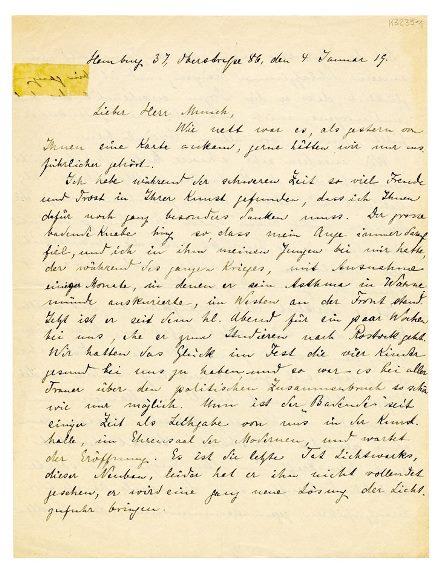 K3235
Hamburg 37, Oberstrasse 86, den 4. Januar 19.
Lieber Herr Munch,
Wie nett war es, als gestern von
Ihnen eine Karte ankam, gerne hätten wir nur aus
führlicher gehört.
Ich habe während der schweren Zeit so viel Freude
und Trost in Ihrer Kunst gefunden, dass ich Ihnen
dafür noch ganz besonders danken muss. Der grosse
badende Knabe hing so, dass mein Auge immer darauf
fiel, und ich in ihm meinen Jungen bei mir hatte,
der während des ganzen Krieges, mit Ausnahme
einiger Monate in denen er sein Asthma in Warne
münde auskurierte, im Westen an der Front stand
Jetzt ist er seit dem hl. Abend für ein paar Wochen
bei uns, ehe er zum Studieren nach Rostock geht.
Wir hatten das Glück im Fest die vier Kinder
gesund bei uns zu haben und so war es bei aller
Trauer über den politischen Zusammenbruch so schön
wie nur möglich. Nun ist der "Badende" seit
einiger Zeit als Leihgabe von uns in der Kunst
halle, im Ehrensaal der Modernen, und wartet
der Eröffnung. Es ist die letzte Tat Lichtwarks,
dieser Neubau, leider hat er ihn nicht vollendet
gesehen, er wird eine ganz neue Lösung der Licht
zufuhr bringen.